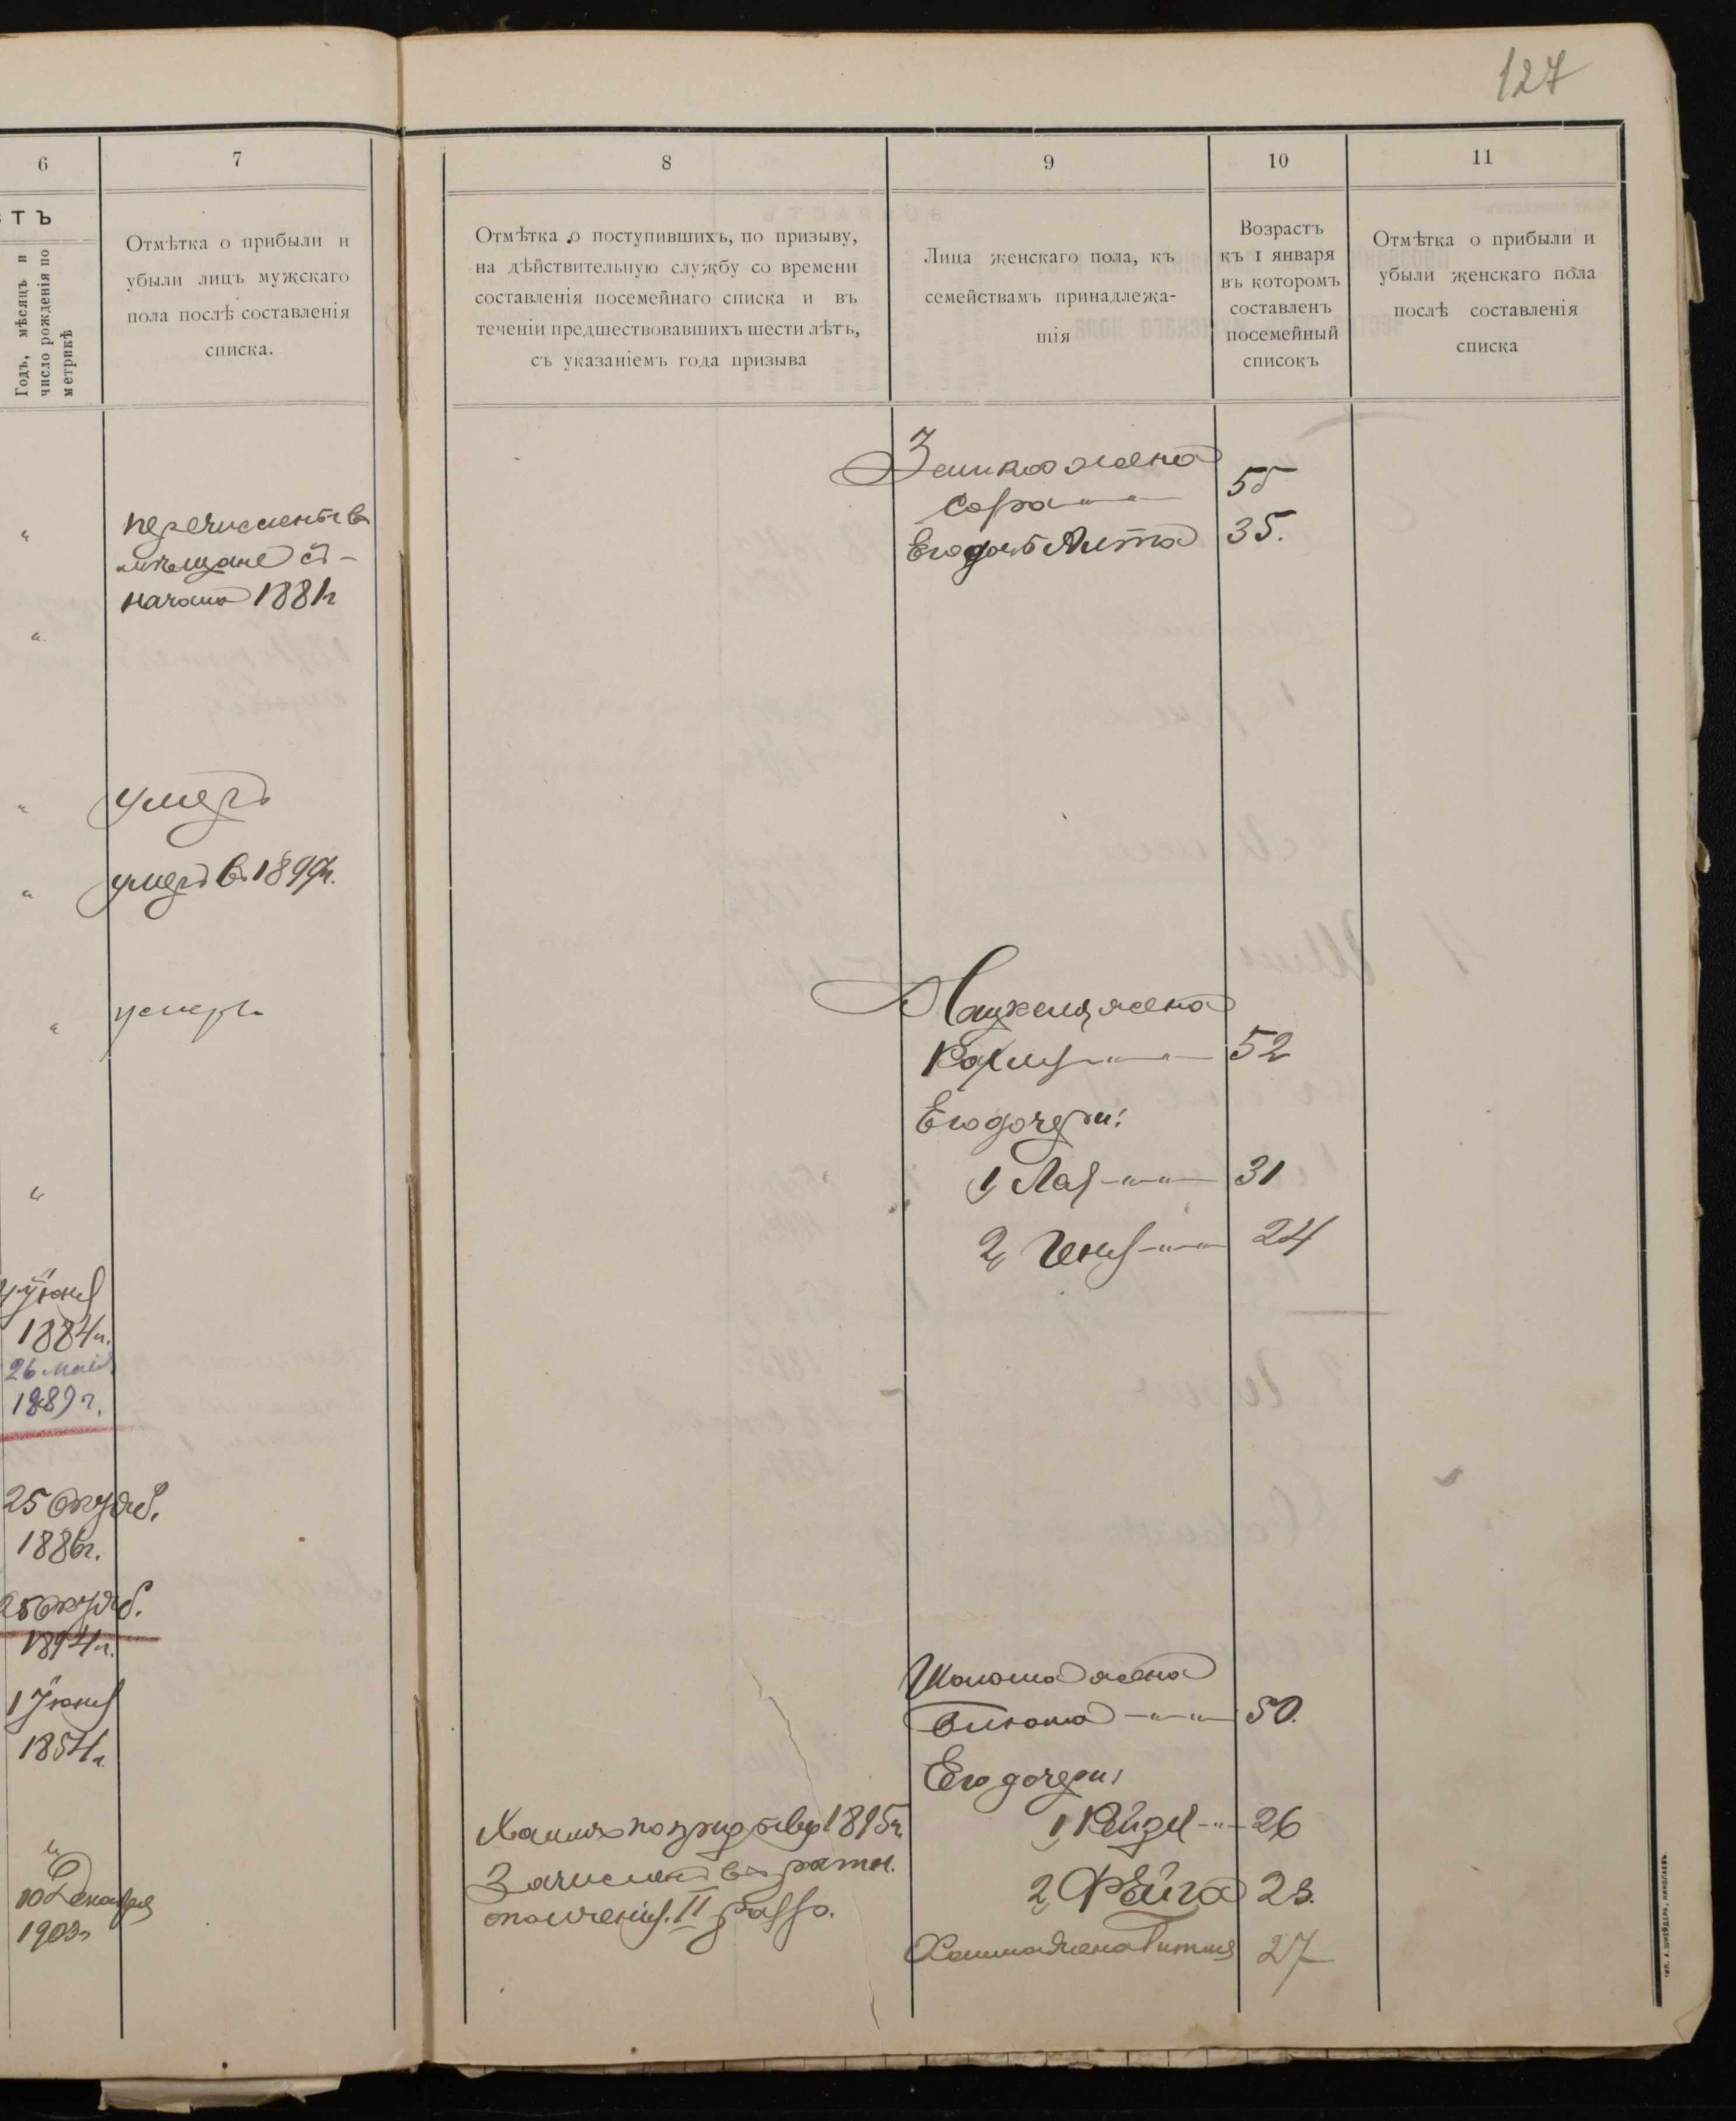 127
6
7
8
9
10
11
тъ
Годъ, мѣсяцъ и
число рожденія по
метрикѣ
Отмѣтка о прибыли и
убыли лицъ мужскаго
пола послѣ составленія
списка.
Отмѣтка о поступившихъ, по призыву,
на дѣйствительную службу со времени
составленія посемейнаго списка и въ
теченіи предшествовавшихъ шести лѣтъ,
съ указаніемъ года призыва
Лица женскаго пола, къ
семействамъ принадлежа-
щія
Возрастъ
къ 1 января
въ которомъ
составленъ
посемейный
списокъ
Отмѣтка о прибыли и
убыли женскаго пола
послѣ составленія
списка
перечисленъ въ
мѣщане съ
начала 1881г
умеръ
умеръ въ 1899г.
умеръ
Іюня
1884г.
26 Маія
1889г.
25 Октяб.
1886г.
25 Октяб.
1894г.
1 Іюня
1854г.
10 Декабря
1903г
жена
Сора 55
Его дочь 35.
жена
52
Его дочери:
1, Лая 31
2, Геня 24
Шолома жена
50.
Его дочери:
1, Рейзя 26
2, Фейга 23.
Хаима жена Гитля 27
Хаимъ по призыву 1895г.
Зачисленъ въ ратн.
ополченія II разр.
тип. А. Шнейдеръ, Николаевъ